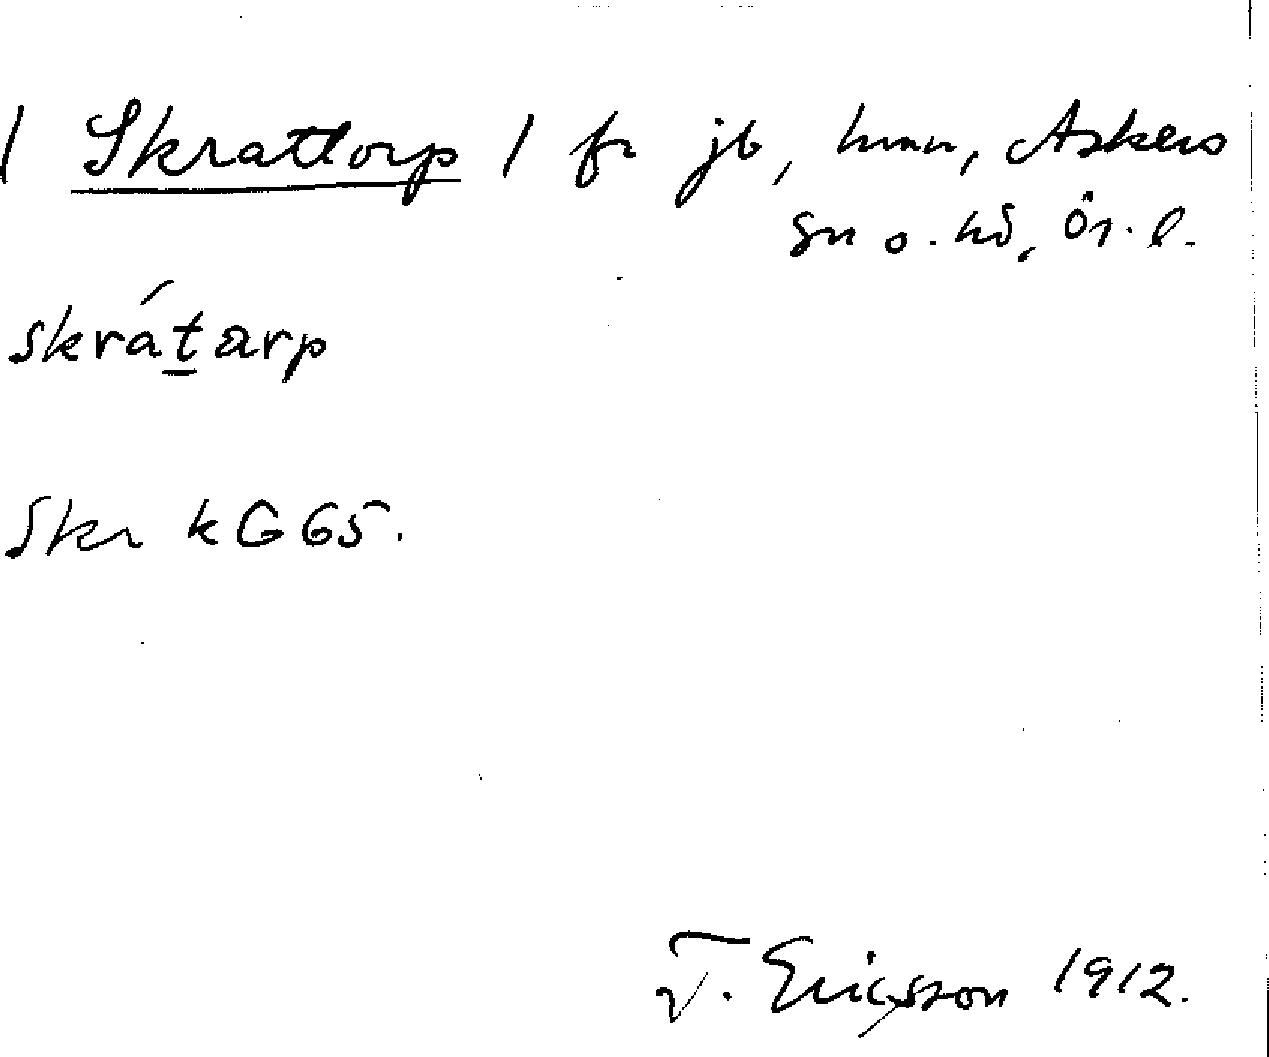 / Skrattorp / fr jb, hmn, Askers
sn o. hd, Ör. l.
skrátarp
Skr kG 65.
T. Ericsson 1912.